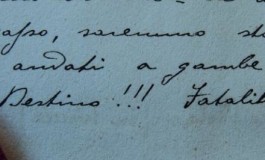 asso, saremmo st
andati a gambe
Destino!!! Fatalit